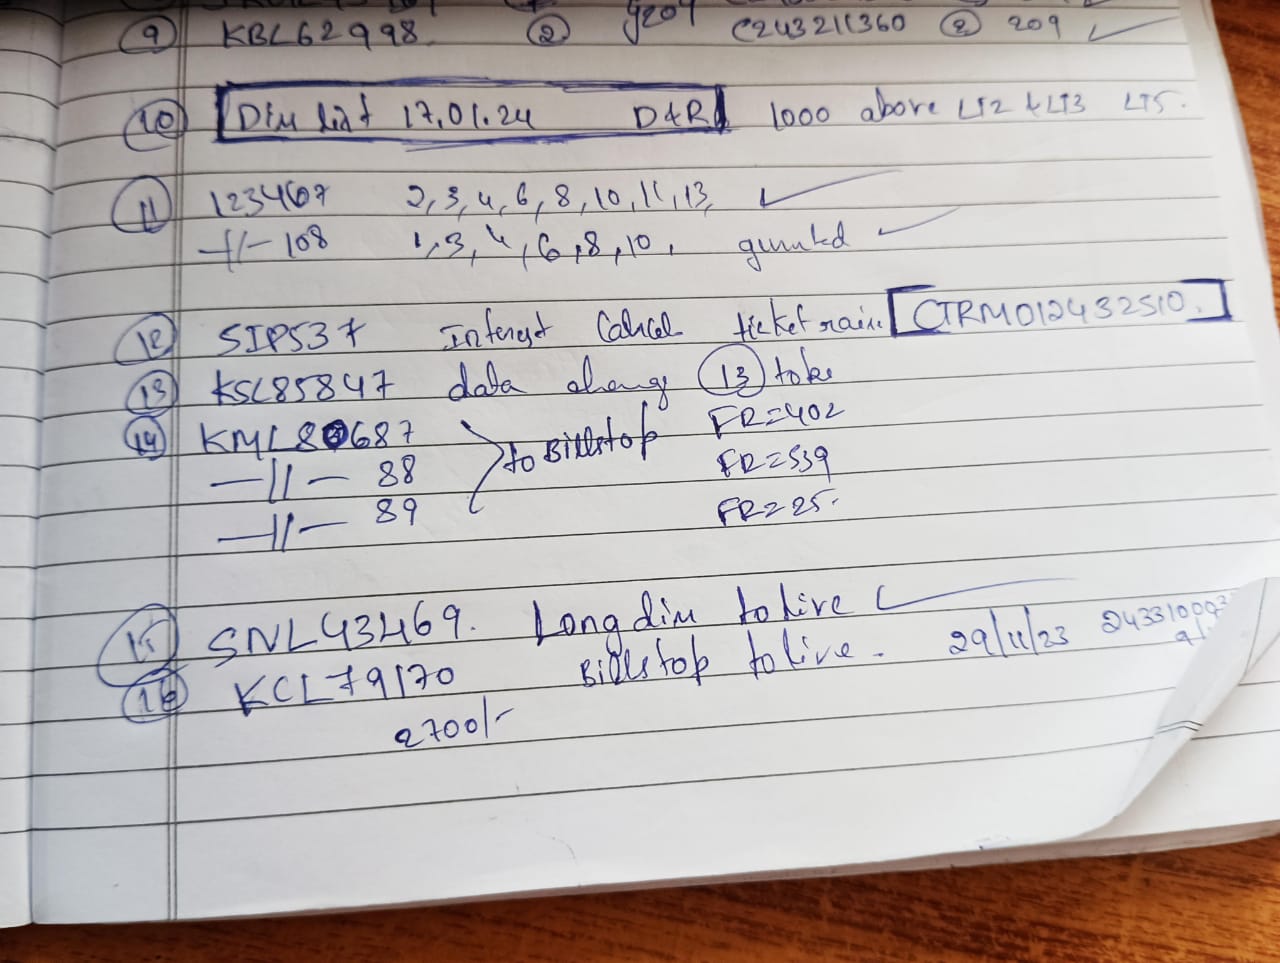 9 KBL62998 2 209 C243211360 2 209 ✓
10 Dim list 17.01.24 D&R 1000 above LT2 & LT3 LT5.
11 1234607 2, 3, 4, 6, 8, 10, 11, 13, ✓
-//- 108 1, 3, 4, 6, 8, 10, ✓
12 SIP537 Interest Cancel ticket CTRM012432510.
13 KSL85847 data change 13 toke
14 KML80687 to Billstop FR=402
-//- 88 FR=539
-//- 89 FR=25.
15 SNL43469. Long dim to live ✓
16 KCL79170 Billstop to live. 29/11/23
2700/-